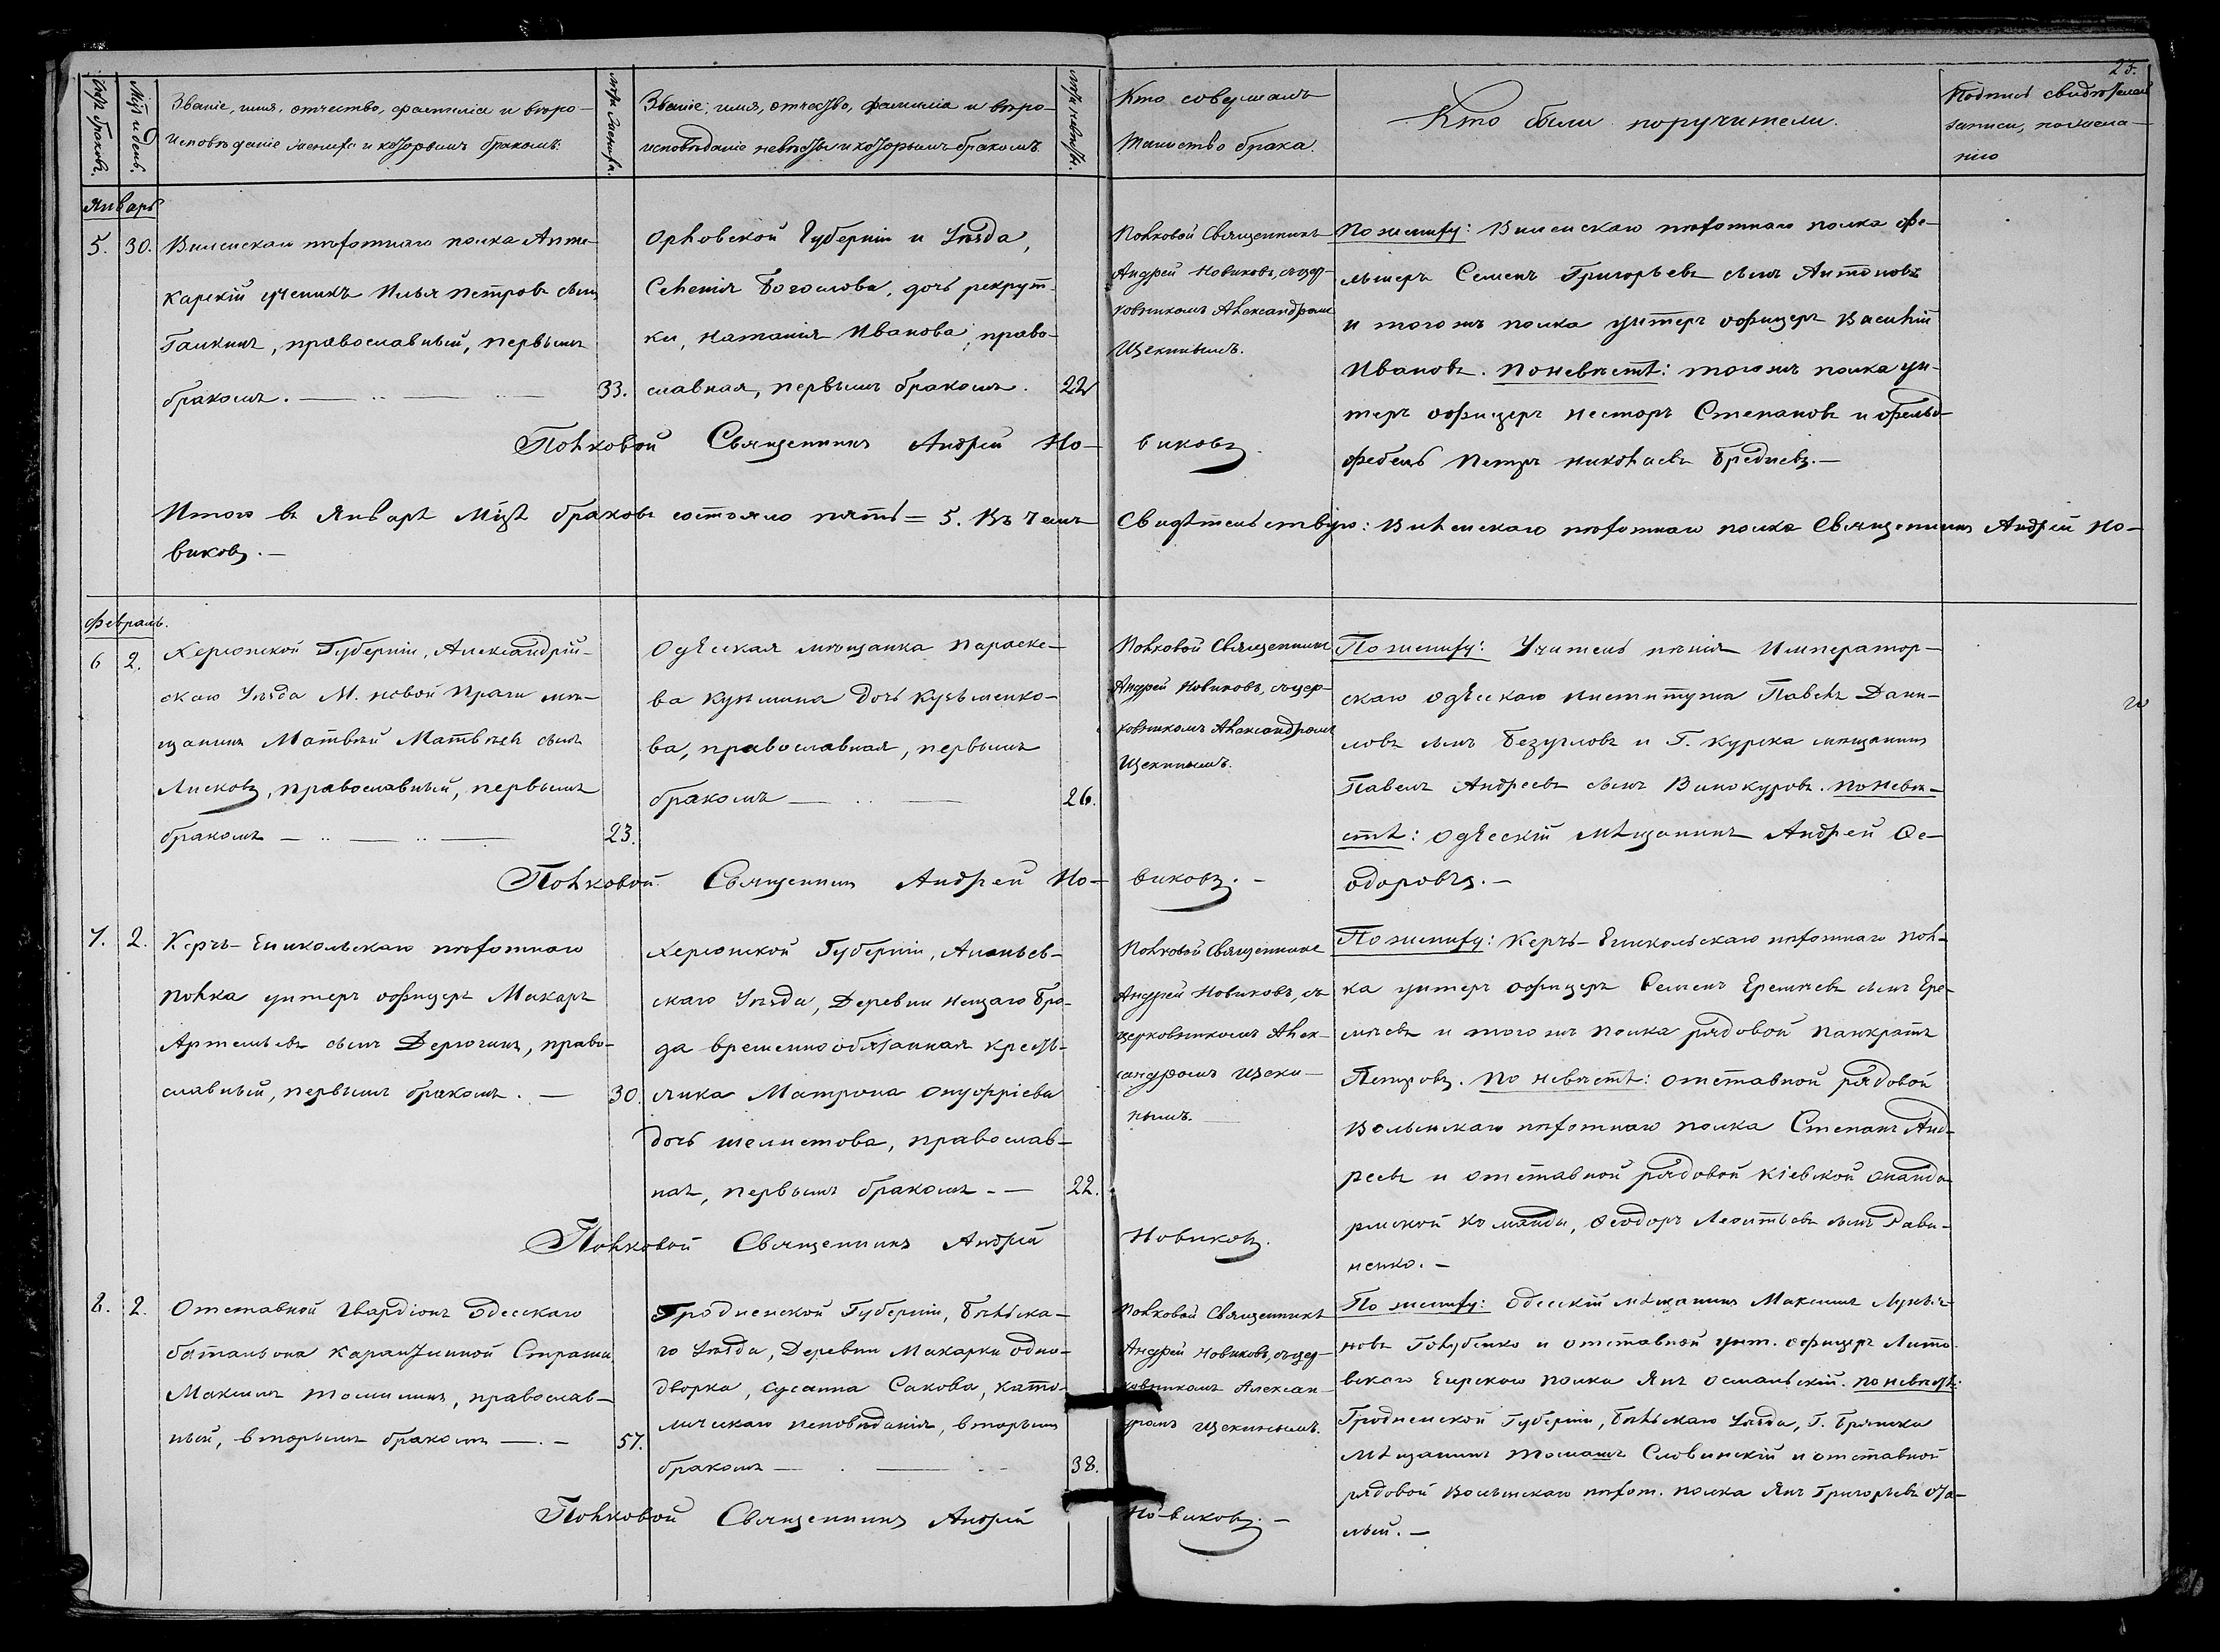 23.
Счетъ браковъ.
Мѣс. и день.
Званіе, имя, отчество, фамилія и вѣро-
исповѣданіе жениха и которымъ бракомъ.
лѣта жениха.
Званіе, имя, отчество, фамилія и вѣро-
исповѣданіе невѣсты и которымъ бракомъ.
лѣта невѣсты.
Кто совершалъ
таинство брака.
Кто были поручители.
Подпись свидѣтелей
записи, по желa-
нію
Январь
5.
30.
Виленскаго пѣхотнаго полка Апте-
карскій ученикъ Илья Петровъ сынъ
Галкинъ, православный, первымъ
бракомъ.
33.
Орловской Губерніи и Уѣзда,
Селенія Богослова, дочь рекрут-
ки, Наталія Иванова, право-
славная, первымъ бракомъ.
22
Полковой Священникъ
Андрей Новиковъ, съ цер-
ковникомъ Александромъ
Щекинымъ.
По жениху: Виленскаго пѣхотнаго полка фе-
льшеръ Семенъ Григорьевъ сынъ Антоновъ
и того жъ полка унтеръ офицеръ Василій
Ивановъ. По невѣстѣ: того жъ полка ун-
теръ офицеръ Несторъ Степановъ и фельд-
фебель Петръ Николаевъ Бредневъ.—
Полковой Священникъ Андрей Но-
виковъ.
Итого въ Январѣ Мѣсяцѣ браковъ состояло пять = 5. Въ чемъ Свидѣтельствую: Виленскаго пѣхотнаго полка Священникъ Андрей Но-
виковъ.—
Февраль.
6
2.
Херсонской Губерніи, Александрій-
скаго Уѣзда М. Новой Праги мѣ-
щанинъ Матвѣй Матвѣевъ сынъ
Лисковъ, православный, первымъ
бракомъ
23.
Одѣсская мѣщанка Параске-
ва Кузьмина дочь Кузьменко-
ва, православная, первымъ
бракомъ
26.
Полковой Священникъ
Андрей Новиковъ, съ цер-
ковникомъ Александромъ
Щекинымъ.
По жениху: Учитель пѣнія Император-
скаго Одѣсскаго института Павелъ Дани-
ловъ сынъ Безугловъ и Г. Курска мѣщанинъ
Павелъ Андреевъ сынъ Винокуровъ. По невѣ-
стѣ: Одѣсскій Мѣщанинъ Андрей Ѳе-
одоровъ.—
Полковой Священникъ Андрей Но-
виковъ.—
7.
2.
Керчь-Еникольскаго пѣхотнаго
полка унтеръ офицеръ Макаръ
Артемьевъ сынъ Дерюгинъ, право-
славный, первымъ бракомъ.—
30.
Херсонской Губерніи, Ананьев-
скаго Уѣзда, Деревни Нещаго Бро-
да временнообязанная кресть-
янка Матрона Онуфріева
дочь Шелистова, православ-
ная, первымъ бракомъ.—
22.
Полковой Священникъ
Андрей Новиковъ, съ
церковникомъ Алек-
сандромъ Щеки-
нымъ.
По жениху: Керчь-Еникольскаго пѣхотнаго пол-
ка унтеръ офицеръ Семенъ Еремѣевъ сынъ Ере-
мѣевъ и того жъ полка рядовой Панкратъ
Петровъ. По невѣстѣ: отставной рядовой
Волынскаго пѣхотнаго полка Степанъ Анд-
реевъ и отставной рядовой Кіевской жанда-
рмской команды, Ѳеодоръ Леонтьевъ сынъ Рави-
ненко.—
Полковой Священникъ Андрей
Новиковъ.
8.
2.
Отставной Гвардіонъ Одесскаго
баталіона Карантинной Стражи
Максимъ Томилинъ, православ-
ный, вторымъ бракомъ
57.
Гродненской Губерніи, Бѣльска-
го Уѣзда, Деревни Макарки одно-
дворка, Сусанна Сакова, като-
лическаго исповѣданія, вторымъ
бракомъ
38.
Полковой Священникъ
Андрей Новиковъ, съ цер-
ковникомъ Алексан-
дромъ Щекинымъ.
По жениху: Одесскій мѣщанинъ Максимъ Лукья-
новъ Голубенко и отставной унт. офицеръ Лито-
вскаго Егерскаго полка Янъ Османьскій. По невѣстѣ:
Гродненской Губерніи, Бѣльскаго Уѣзда, Г. Брянска
мѣщанинъ Томашъ Словинскій и отставной
рядовой Волынскаго пѣхот. полка Янъ Григорьевъ
Полковой Священникъ Андрей
Новиковъ.—